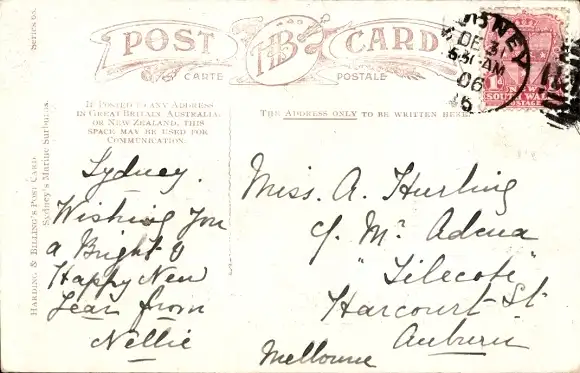 Series 65.
POST CARD
HB
CARTE POSTALE
SYDNEY
DE 31
6 30 AM
06
NEW
SOUTH WALES
POSTAGE
IF POSTED TO ANY ADDRESS
IN GREAT BRITAIN, AUSTRALIA,
OR NEW ZEALAND, THIS
SPACE MAY BE USED FOR
COMMUNICATION.
THE ADDRESS ONLY TO BE WRITTEN HERE.
HARDING & BILLING'S POST CARD
Sydney's Marine Suburbs.
Sydney.
Wishing You
a Bright &
Happy New
Year from
Nellie
Miss. A. Hurling
c/. Mrs
"Tilecote"
Harcourt St
Auburn
Melbourne